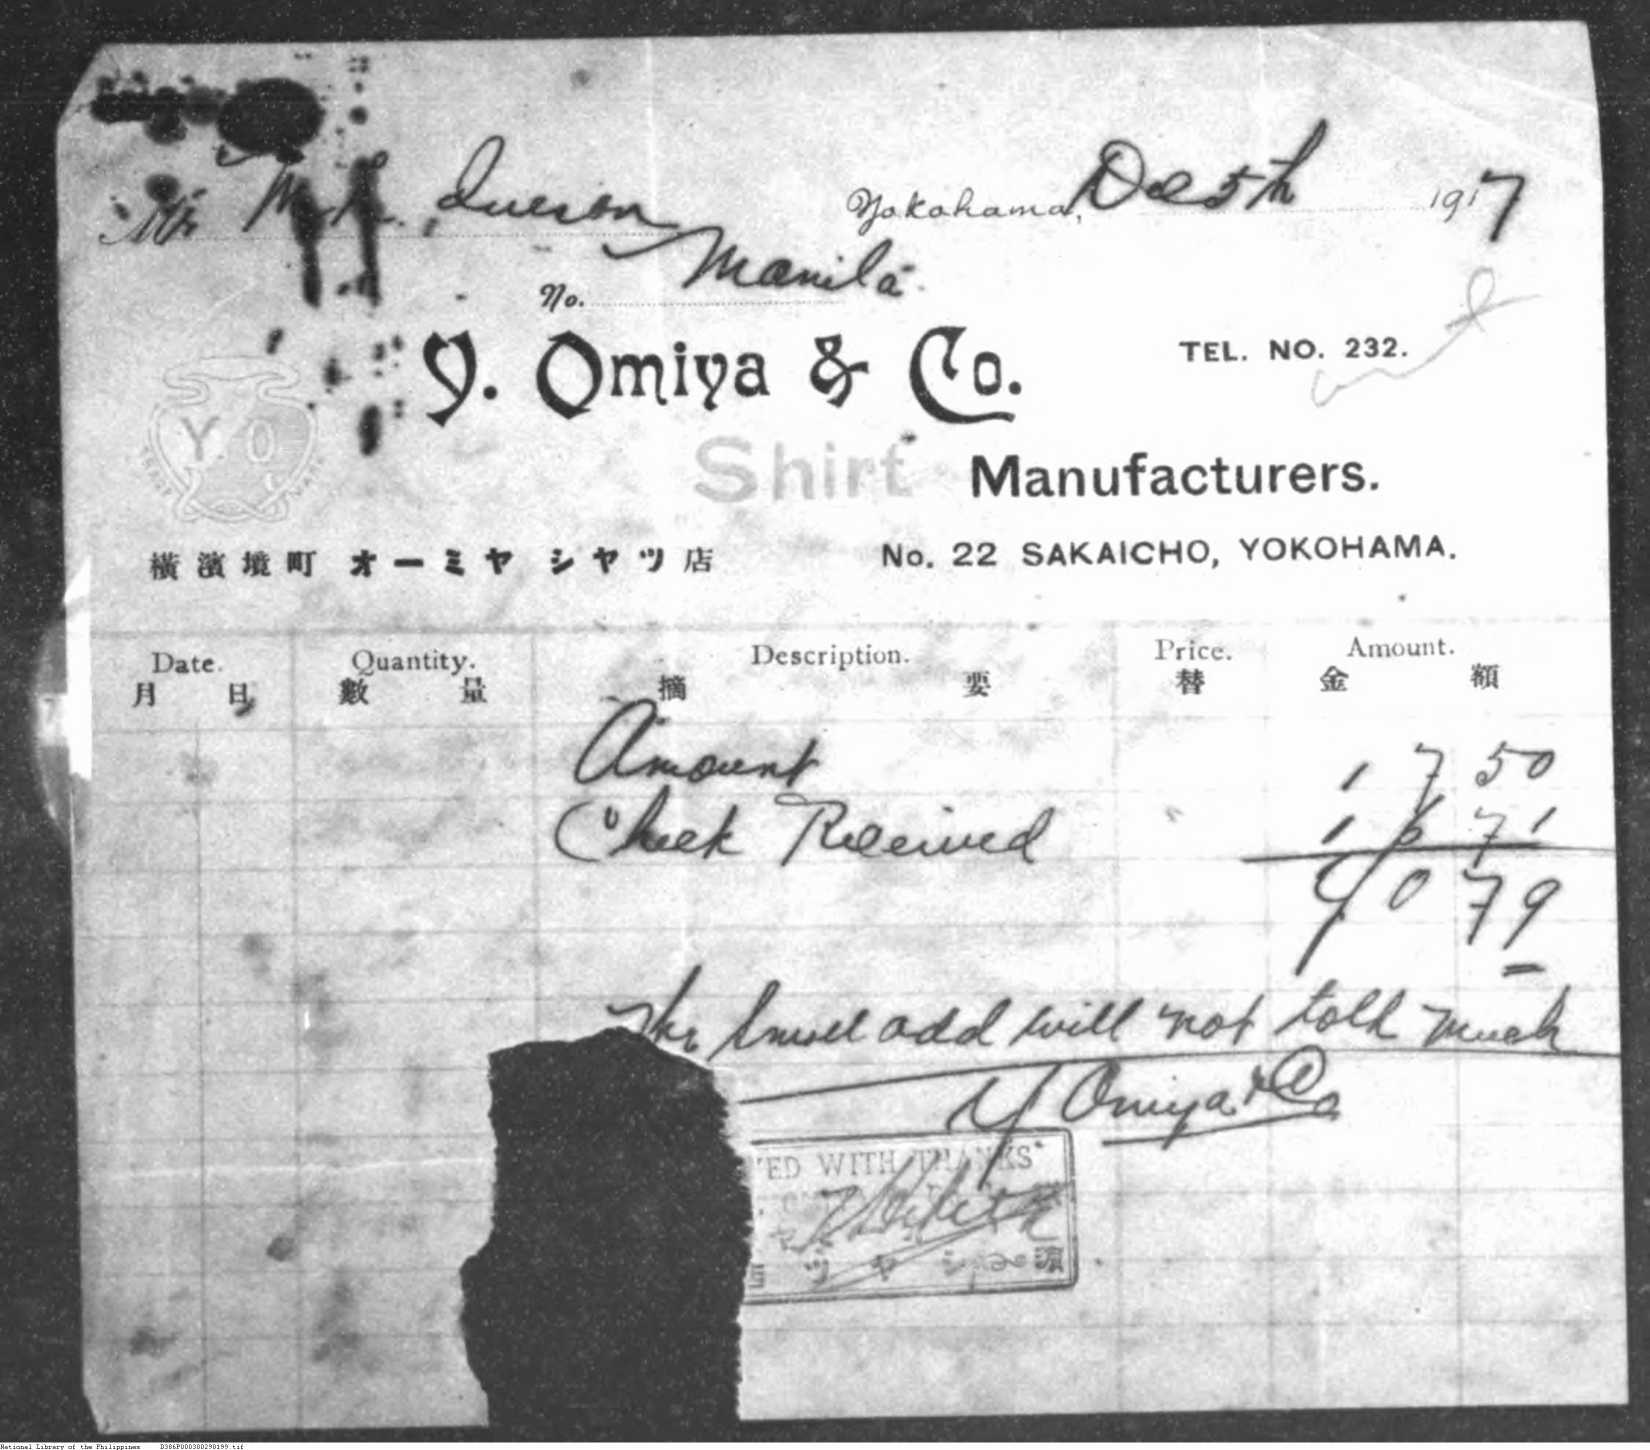 Mr M. L. Quezon Yokohama, Dec 5th 1917
Manila
No.
Y. Omiya & Co. TEL. NO. 232.
Y. O.
TRADE MARK
Shirt Manufacturers.
橫濱境町 オーミヤ シヤツ店 No. 22 SAKAICHO, YOKOHAMA.
Date. Quantity. Description. Price. Amount.
月 日 數 量 摘 要 替 金 額
Amount 17 50
Check Received 16 71
Y 0 79
The small add will not told much
Y Omiya & Co
TED WITH THANKS
ツ ヤ シ 濱
National Library of the Philippines D386P000300298199.tif